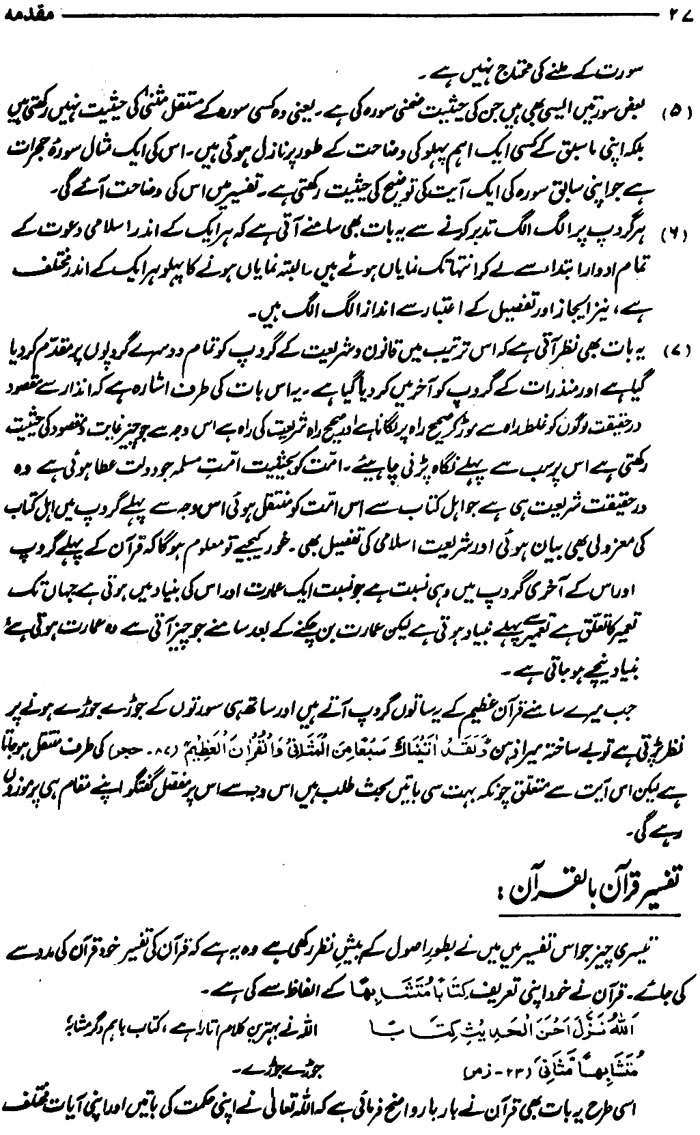 ۲۷ مقدمہ
سورت کے ملنے کی محتاج نہیں ہے۔
(۵) بعض سورتیں ایسی بھی ہیں جن کی حیثیت ضمنی سورہ کی ہے۔ یعنی وہ کسی سورہ کے مستقل مثنیٰ کی حیثیت نہیں رکھتی ہیں
بلکہ اپنی ماسبق کے کسی ایک اہم پہلو کی وضاحت کے طور پر نازل ہوئی ہیں۔ اس کی ایک مثال سورۂ حجرات
ہے جو اپنی سابق سورہ کی ایک آیت کی توضیح کی حیثیت رکھتی ہے۔ تفسیر میں اس کی وضاحت آئے گی۔
(۶) ہر گروپ پر الگ الگ تدبر کرنے سے یہ بات بھی سامنے آتی ہے کہ ہر ایک کے اندر اسلامی دعوت کے
تمام ادوار ابتدا سے لے کر انتہا تک نمایاں ہوئے ہیں۔ البتہ نمایاں ہونے کا پہلو ہر ایک کے اندر مختلف
ہے، نیز ایجاز اور تفصیل کے اعتبار سے انداز الگ الگ ہیں۔
(۷) یہ بات بھی نظر آتی ہے کہ اس ترتیب میں قانون و شریعت کے گروپ کو تمام دوسرے گروپوں پر مقدّم کر دیا
گیا ہے اور منذرات کے گروپ کو آخر میں کر دیا گیا ہے۔ یہ اس بات کی طرف اشارہ ہے کہ انذار سے مقصود
درحقیقت لوگوں کو غلط راہ سے موڑ کر صحیح راہ پر لگانا ہے اور صحیح راہ شریعت کی راہ ہے اس وجہ سے جو چیز غایت و مقصود کی حیثیت
رکھتی ہے اس پر سب سے پہلے نگاہ پڑنی چاہیئے۔ امّت کو بحیثیت امّتِ مسلمہ جو دولت عطا ہوئی ہے وہ
درحقیقت شریعت ہی ہے جو اہل کتاب سے اس امّت کو منتقل ہوئی اس وجہ سے پہلے گروپ میں اہل کتاب
کی معزولی بھی بیان ہوئی اور شریعت اسلامی کی تفصیل بھی۔ غور کیجیے تو معلوم ہو گا کہ قرآن کے پہلے گروپ
اور اس کے آخری گروپ میں وہی نسبت ہے جو نسبت ایک عمارت اور اس کی بنیاد میں ہوتی ہے جہاں تک
تعمیر کا تعلق ہے تعمیر سے پہلے بنیاد ہوتی ہے لیکن عمارت بن چکنے کے بعد سامنے جو چیز آتی ہے وہ عمارت ہوتی ہے
بنیاد نیچے ہو جاتی ہے۔
جب میرے سامنے قرآن عظیم کے یہ ساتوں گروپ آتے ہیں اور ساتھ ہی سورتوں کے جوڑے جوڑے ہونے پر
نظر پڑتی ہے تو بے ساختہ میرا ذہن وَلَقَدْ اٰتَيْنٰكَ سَبْعًا مِّنَ الْمَثَانِيْ وَالْقُرْاٰنَ الْعَظِيْمَ (۸۷۔ حجر) کی طرف منتقل ہو جاتا
ہے لیکن اس آیت سے متعلق چونکہ بہت سی باتیں بحث طلب ہیں اس وجہ سے اس پر مفصل گفتگو اپنے مقام ہی پر موزوں
رہے گی۔
تفسیر قرآن بالقرآن:
تیسری چیز جو اس تفسیر میں میں نے بطور اصول کے پیش نظر رکھی ہے وہ یہ ہے کہ قرآن کی تفسیر خود قرآن کی مدد سے
کی جائے۔ قرآن نے خود اپنی تعریف كِتَابًا مُّتَشَابِهًا کے الفاظ سے کی ہے۔
اَللّٰهُ نَزَّلَ اَحْسَنَ الْحَدِيْثِ كِتَابًا اللہ نے بہترین کلام اتارا ہے، کتاب باہم دگر مشابہ
مُّتَشَابِهًا مَّثَانِيَ (۲۳۔ زمر) جوڑے جوڑے۔
اسی طرح یہ بات بھی قرآن نے بار بار واضح فرمائی ہے کہ اللہ تعالیٰ نے اپنی حکمت کی باتیں اور اپنی آیات مختلف